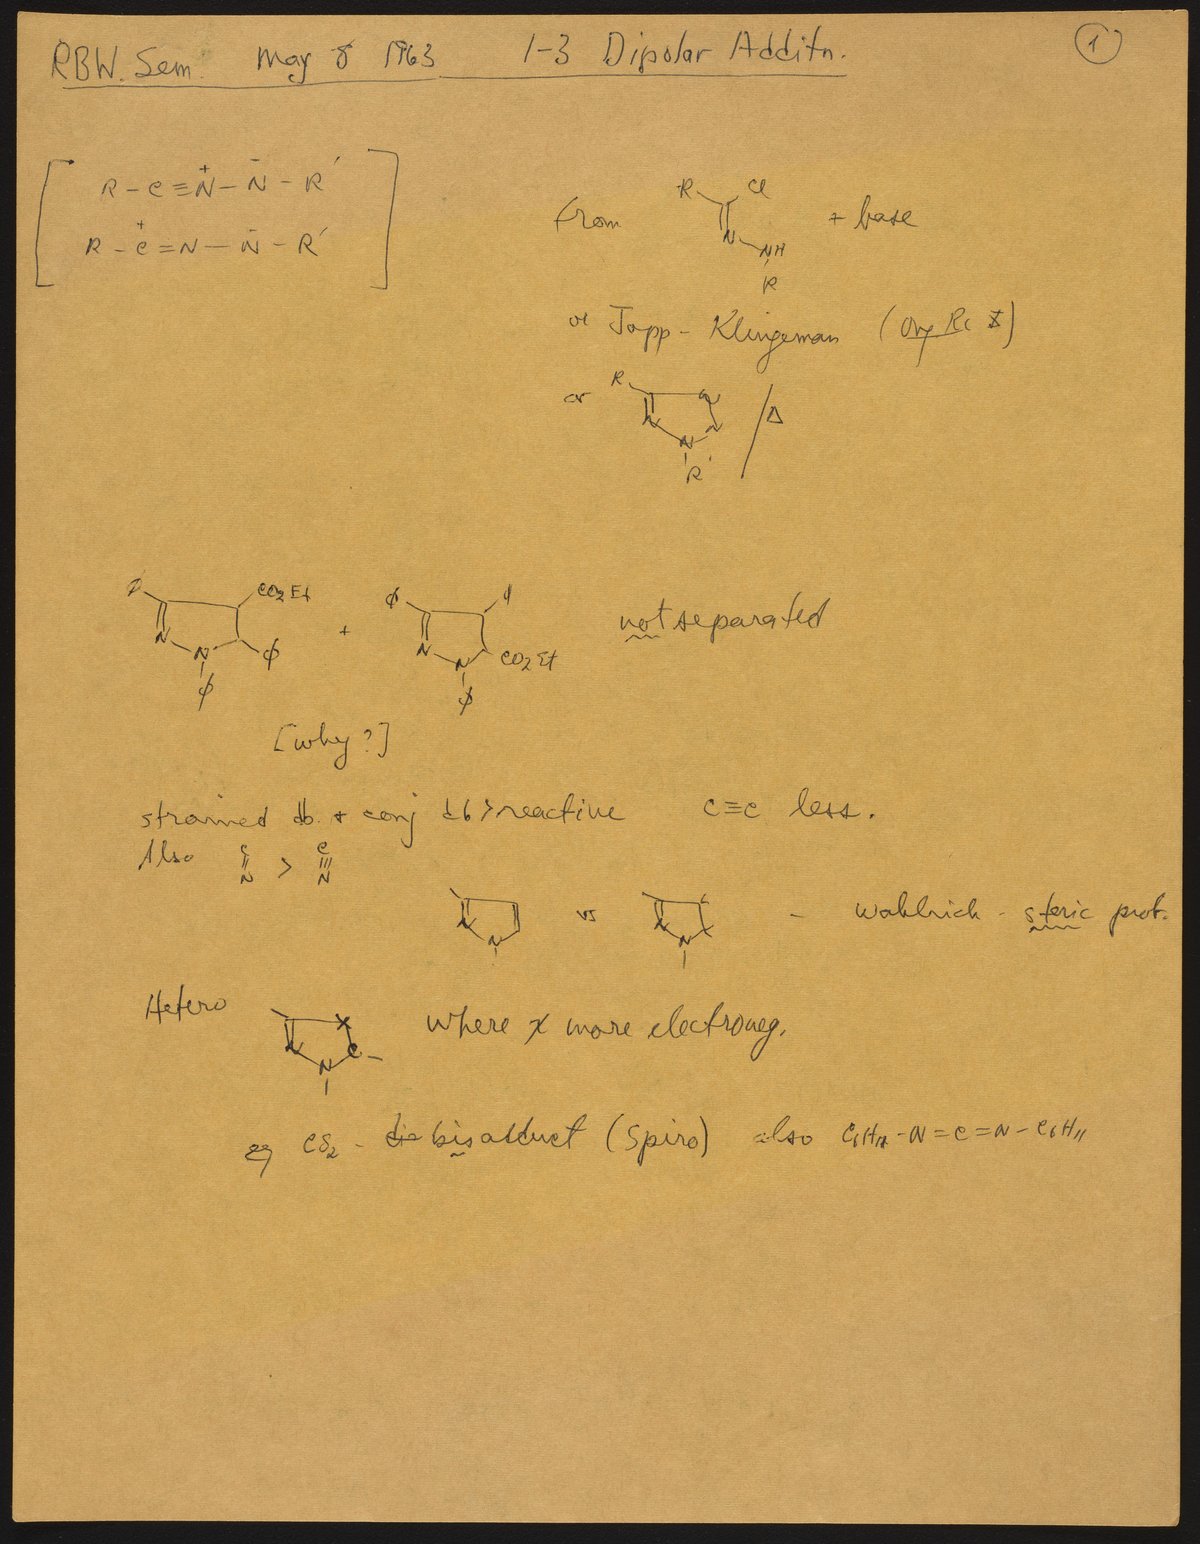 RBW. Sem. May 8 1963 1-3 Dipolar Additn. 1
R - C ≡ N⁺ - N⁻ - R'
R - C⁺ = N - N⁻ - R'
from R Cl N NH R + base
or Japp - Klingeman (Org Rc X)
or R N N N N R' / Δ
CO2Et N N φ φ + φ N N φ CO2Et not separated
[why?]
strained db. + conj db > reactive C≡C less.
Also C=N > C≡N
N N vs N N - steric prob.
Hetero X C N N where X more electroneg.
eg CS2 - bis adduct (Spiro) also C6H11-N=C=N-C6H11